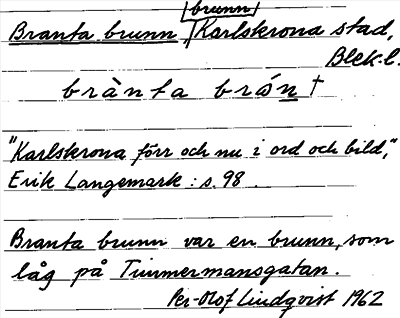 brunn
Branta brunn Karlskrona stad,
Blek.l.
brànta brón †
"Karlskrona förr och nu i ord och bild,",
Erik Langemark : s. 98.
Branta brunn var en brunn, som
låg på Timmermansgatan.
Per-Olof Lindqvist 1962